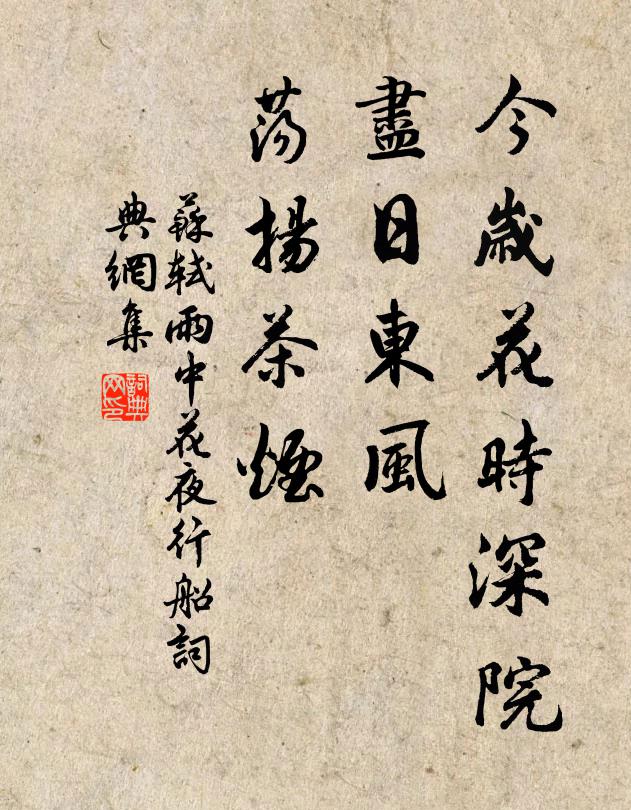 今歲花時深院
盡日東風
蕩揚茶煙
蘇軾雨中花夜行船詞
典網集
詞典
网印